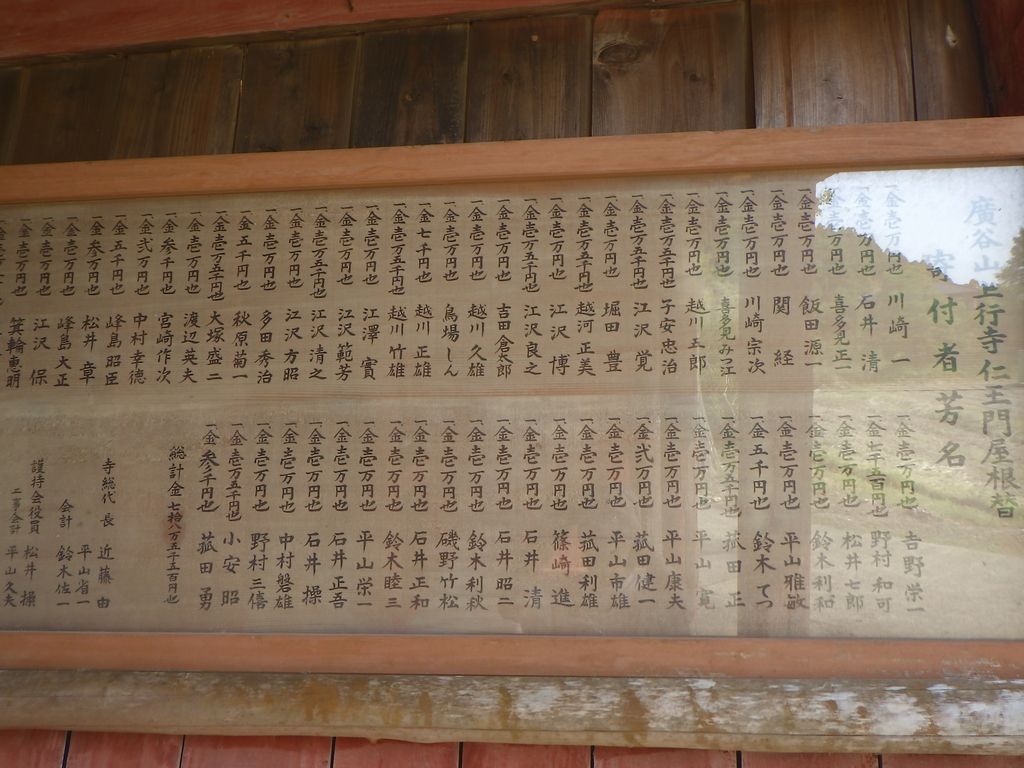 廣谷山上行寺仁王門屋根替
寄付者芳名
一金壱万円也 川崎一
一金壱万円也 石井清
一金壱万円也 喜多見正一
一金壱万円也 飯田源一
一金壱万円也 関経
一金壱万円也 川崎宗次
一金壱万円也 喜多見みつ江
一金壱万円也 越川五郎
一金壱万五千円也 子安忠治
一金壱万五千円也 江沢覚
一金壱万円也 堀田豊
一金壱万円也 越河正美
一金壱万円也 江沢博
一金壱万五千円也 江沢良之
一金壱万円也 吉田倉太郎
一金壱万円也 越川久雄
一金壱万円也 鳥場しん
一金七千円也 越川正雄
一金壱万五千円也 越川竹雄
一金壱万円也 江澤實
一金壱万円也 江沢範芳
一金壱万五千円也 江沢清之
一金壱万円也 江沢方昭
一金壱万円也 多田秀治
一金五千円也 秋原菊一
一金壱万五千円也 大塚盛二
一金壱万円也 渡辺英夫
一金参千円也 宮崎作次
一金弐万円也 中村幸徳
一金五千円也 峰島昭臣
一金参万円也 松井章
一金壱万円也 峰島大正
一金壱万円也 江沢保
一金壱万円也 箕輪恵明
一金壱万円也 吉野栄一
一金七千五百円也 野村和可
一金壱万円也 松井七郎
一金壱万円也 鈴木利和
一金壱万円也 平山雅敏
一金五千円也 鈴木てつ
一金壱万五千円也 菰田正
一金壱万円也 平山寛
一金壱万円也 平山康夫
一金弐万円也 菰田健一
一金壱万円也 平山市雄
一金壱万円也 菰田利雄
一金壱万円也 篠崎進
一金壱万円也 石井清
一金壱万円也 石井昭二
一金壱万円也 鈴木利秋
一金壱万円也 磯野竹松
一金壱万円也 石井正和
一金壱万円也 鈴木睦三
一金壱万円也 平山栄一
一金壱万円也 石井正吾
一金壱万円也 石井操
一金壱万円也 中村磐雄
一金壱万円也 野村三僖
一金壱万五千円也 小安昭
一金参千円也 菰田勇
総計金七拾八万五千五百円也
寺総代 長 近藤由
平山省一
会計 鈴木佐一
護持会役員 松井操
工事会計 平山久夫